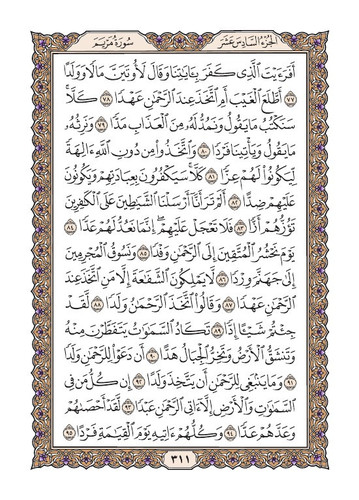 الجزء السادس عشر
سورة مريم
أَفَرَءَيْتَ ٱلَّذِى كَفَرَ بِـَٔايَٰتِنَا وَقَالَ لَأُوتَيَنَّ مَالًا وَوَلَدًا
﴿٧٧﴾ أَطَّلَعَ ٱلْغَيْبَ أَمِ ٱتَّخَذَ عِندَ ٱلرَّحْمَٰنِ عَهْدًا ﴿٧٨﴾ كَلَّا
سَنَكْتُبُ مَا يَقُولُ وَنَمُدُّ لَهُۥ مِنَ ٱلْعَذَابِ مَدًّا ﴿٧٩﴾ وَنَرِثُهُۥ
مَا يَقُولُ وَيَأْتِينَا فَرْدًا ﴿٨٠﴾ وَٱتَّخَذُوا۟ مِن دُونِ ٱللَّهِ ءَالِهَةً
لِّيَكُونُوا۟ لَهُمْ عِزًّا ﴿٨١﴾ كَلَّا سَيَكْفُرُونَ بِعِبَادَتِهِمْ وَيَكُونُونَ
عَلَيْهِمْ ضِدًّا ﴿٨٢﴾ أَلَمْ تَرَ أَنَّآ أَرْسَلْنَا ٱلشَّيَٰطِينَ عَلَى ٱلْكَٰفِرِينَ
تَؤُزُّهُمْ أَزًّا ﴿٨٣﴾ فَلَا تَعْجَلْ عَلَيْهِمْ إِنَّمَا نَعُدُّ لَهُمْ عَدًّا ﴿٨٤﴾
يَوْمَ نَحْشُرُ ٱلْمُتَّقِينَ إِلَى ٱلرَّحْمَٰنِ وَفْدًا ﴿٨٥﴾ وَنَسُوقُ ٱلْمُجْرِمِينَ
إِلَىٰ جَهَنَّمَ وِرْدًا ﴿٨٦﴾ لَّا يَمْلِكُونَ ٱلشَّفَٰعَةَ إِلَّا مَنِ ٱتَّخَذَ عِندَ
ٱلرَّحْمَٰنِ عَهْدًا ﴿٨٧﴾ وَقَالُوا۟ ٱتَّخَذَ ٱلرَّحْمَٰنُ وَلَدًا ﴿٨٨﴾ لَّقَدْ
جِئْتُمْ شَيْـًٔا إِدًّا ﴿٨٩﴾ تَكَادُ ٱلسَّمَٰوَٰتُ يَتَفَطَّرْنَ مِنْهُ
وَتَنشَقُّ ٱلْأَرْضُ وَتَخِرُّ ٱلْجِبَالُ هَدًّا ﴿٩٠﴾ أَن دَعَوْا۟ لِلرَّحْمَٰنِ وَلَدًا
﴿٩١﴾ وَمَا يَنۢبَغِى لِلرَّحْمَٰنِ أَن يَتَّخِذَ وَلَدًا ﴿٩٢﴾ إِن كُلُّ مَن فِى
ٱلسَّمَٰوَٰتِ وَٱلْأَرْضِ إِلَّآ ءَاتِى ٱلرَّحْمَٰنِ عَبْدًا ﴿٩٣﴾ لَّقَدْ أَحْصَىٰهُمْ
وَعَدَّهُمْ عَدًّا ﴿٩٤﴾ وَكُلُّهُمْ ءَاتِيهِ يَوْمَ ٱلْقِيَٰمَةِ فَرْدًا ﴿٩٥﴾
٣١١